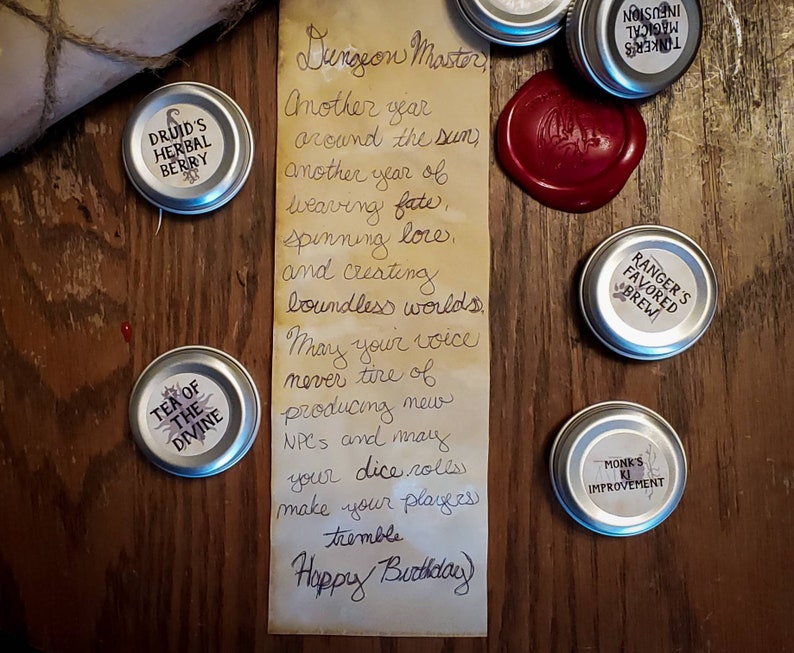 Dungeon Master,
Another year
around the sun,
another year of
weaving fate,
spinning lore,
and creating
boundless worlds.
May your voice
never tire of
producing new
NPCs and may
your dice rolls
make your players
tremble
Happy Birthday
DRUID'S
HERBAL
BERRY
TEA OF
THE
DIVINE
TINKER'S
MAGICAL
INFUSION
RANGER'S
FAVORED
BREW
MONK'S
KI
IMPROVEMENT